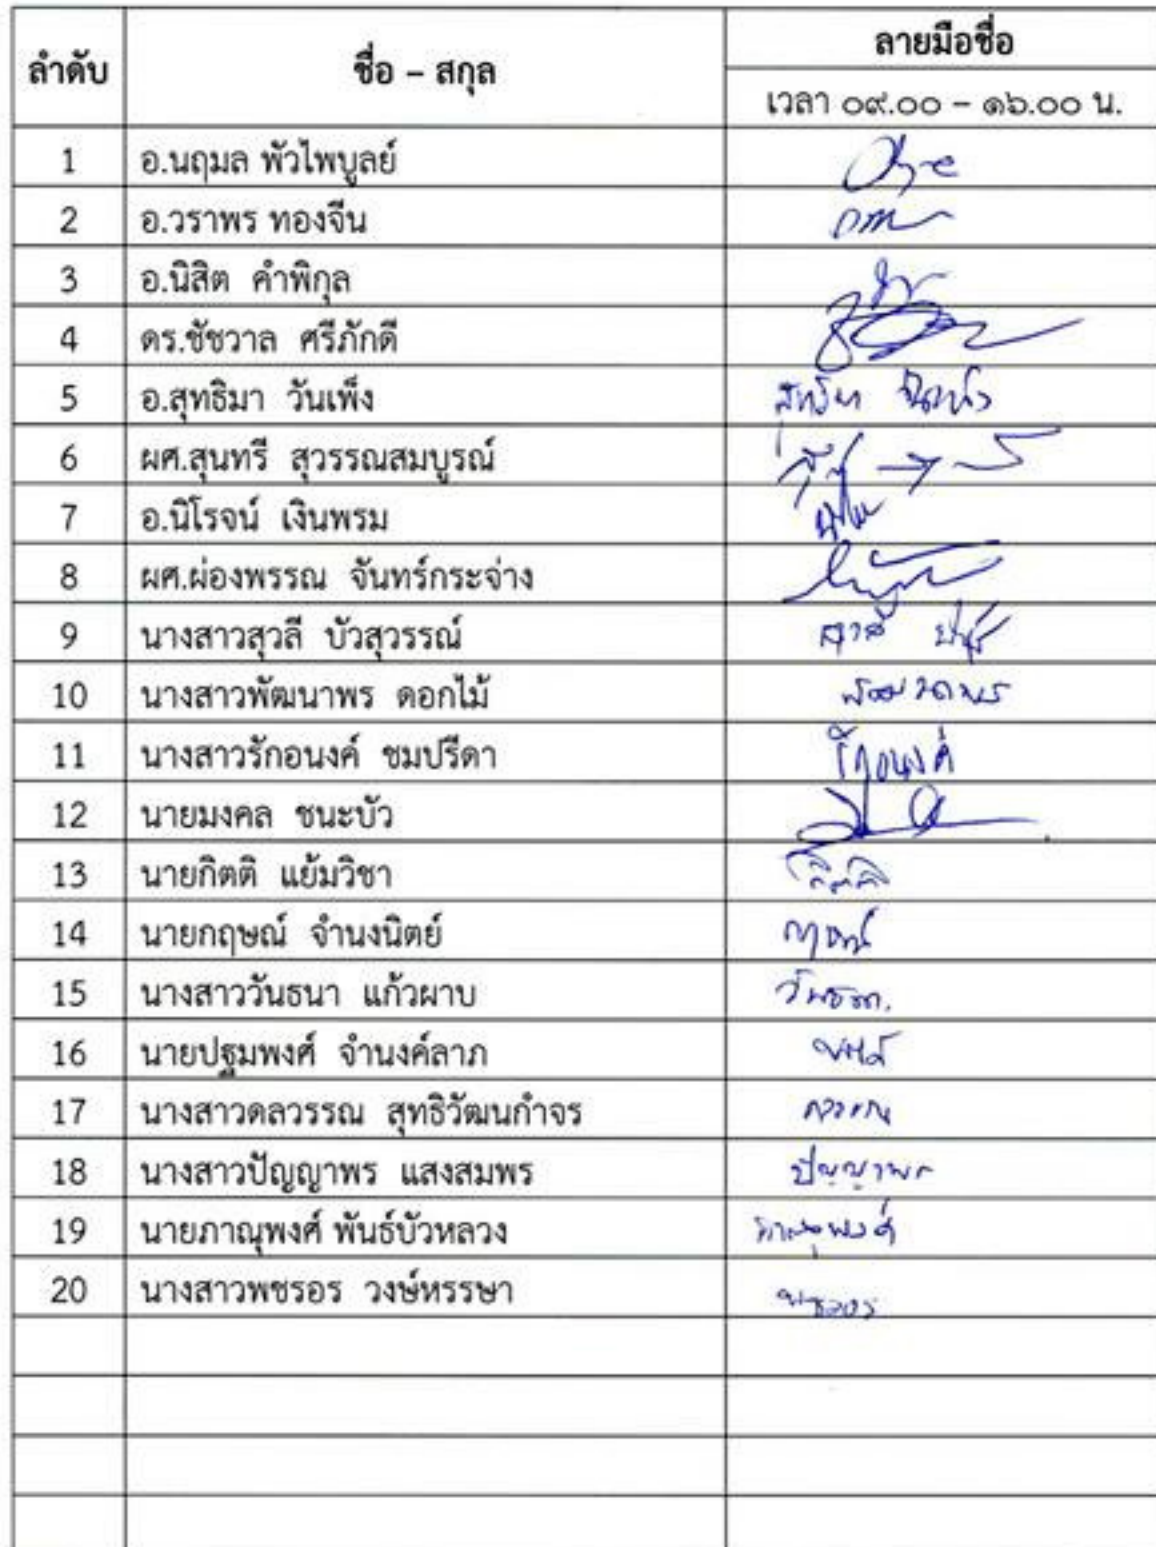 ลำดับ ชื่อ – สกุล ลายมือชื่อ
เวลา ๐๙.๐๐ – ๑๖.๐๐ น.
1 อ.นฤมล พัวไพบูลย์
2 อ.วราพร ทองจีน
3 อ.นิสิต คำพิกุล
4 ดร.ชัชวาล ศรีภักดี
5 อ.สุทธิมา วันเพ็ง
6 ผศ.สุนทรี สุวรรณสมบูรณ์
7 อ.นิโรจน์ เงินพรม
8 ผศ.ผ่องพรรณ จันทร์กระจ่าง
9 นางสาวสุวลี บัวสุวรรณ์
10 นางสาวพัฒนาพร ดอกไม้
11 นางสาวรักอนงค์ ชมปรีดา รักอนงค์
12 นายมงคล ชนะบัว
13 นายกิตติ แย้มวิชา
14 นายกฤษณ์ จำนงนิตย์
15 นางสาววันธนา แก้วผาบ
16 นายปฐมพงศ์ จำนงค์ลาภ
17 นางสาวดลวรรณ สุทธิวัฒนกำจร
18 นางสาวปัญญาพร แสงสมพร ปัญญาพร
19 นายภาณุพงศ์ พันธ์บัวหลวง ภาณุพงศ์
20 นางสาวพชรอร วงษ์หรรษา พชรอร